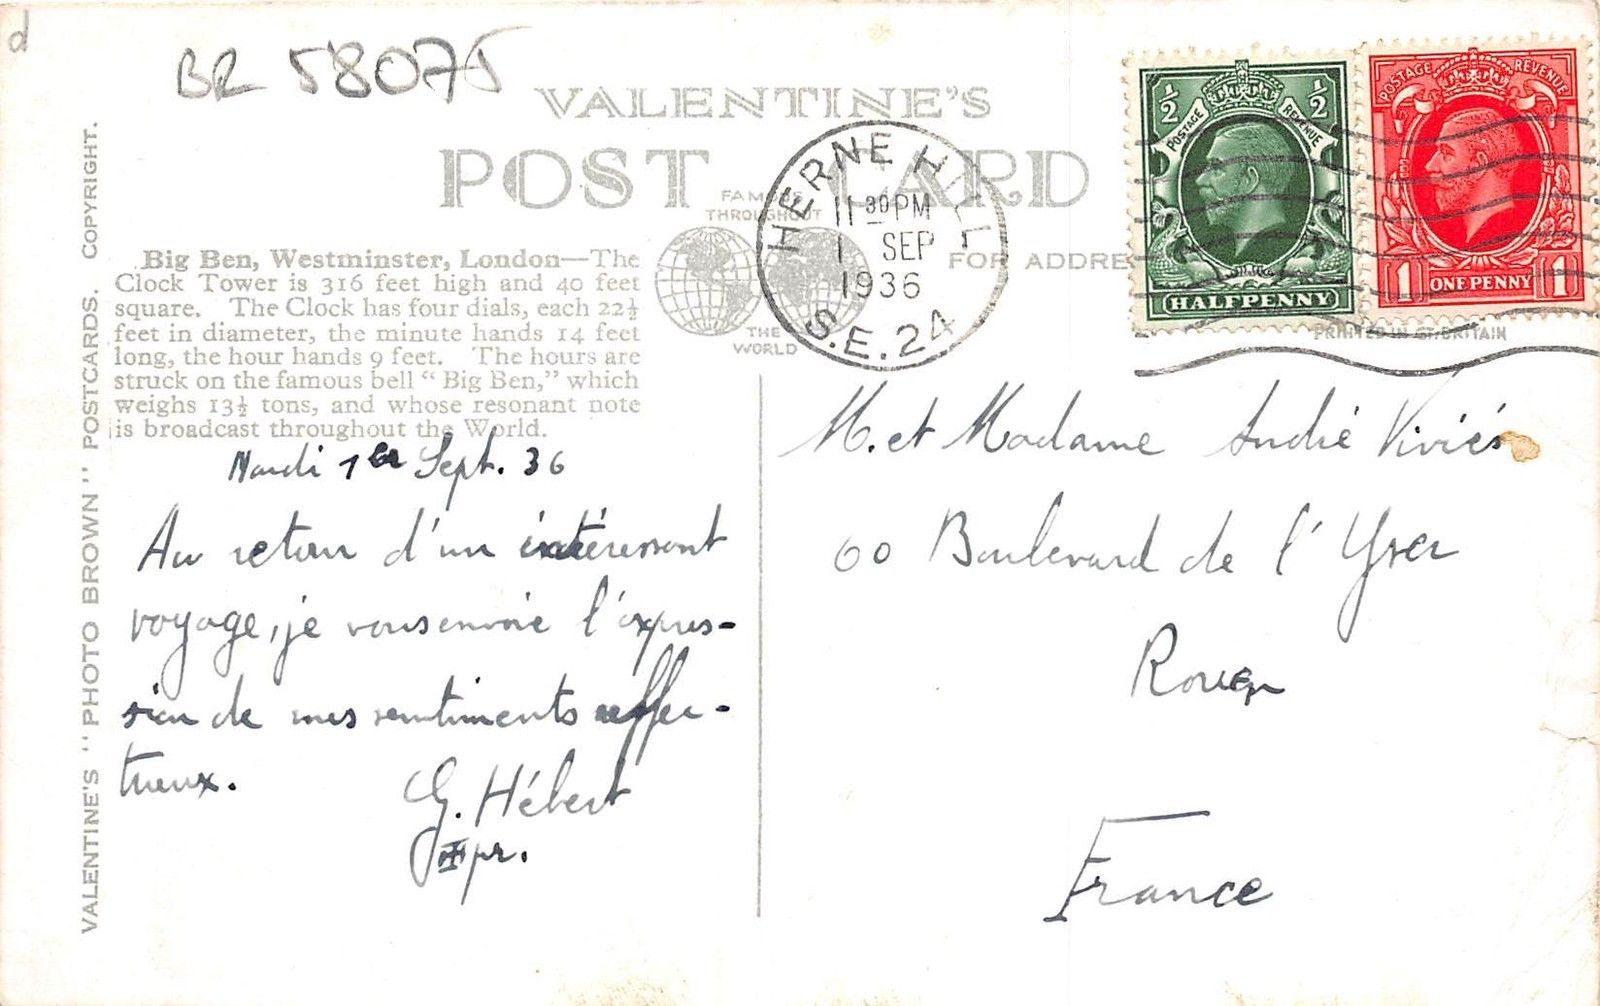 d
BR 58075
VALENTINE'S
POST CARD
FAMOUS
THROUGHOUT
THE
WORLD
FOR ADDRE
PRINTED IN GT. BRITAIN
HERNE HILL
11 30 PM
1 SEP
1936
S.E.24
½ ½
POSTAGE REVENUE
HALFPENNY
POSTAGE REVENUE
1 ONE PENNY 1
VALENTINE'S "PHOTO BROWN" POSTCARDS. COPYRIGHT.
Big Ben, Westminster, London—The
Clock Tower is 316 feet high and 40 feet
square. The Clock has four dials, each 22½
feet in diameter, the minute hands 14 feet
long, the hour hands 9 feet. The hours are
struck on the famous bell "Big Ben," which
weighs 13½ tons, and whose resonant note
is broadcast throughout the World.
Mardi 1er Sept. 36
Au retour d'un intéressant
voyage, je vous envoie l'expres-
sion de mes sentiments affec-
tueux.
G. Hébert
pr.
M. et Madame André Viviés
60 Boulevard de l'Yser
Rouen
France